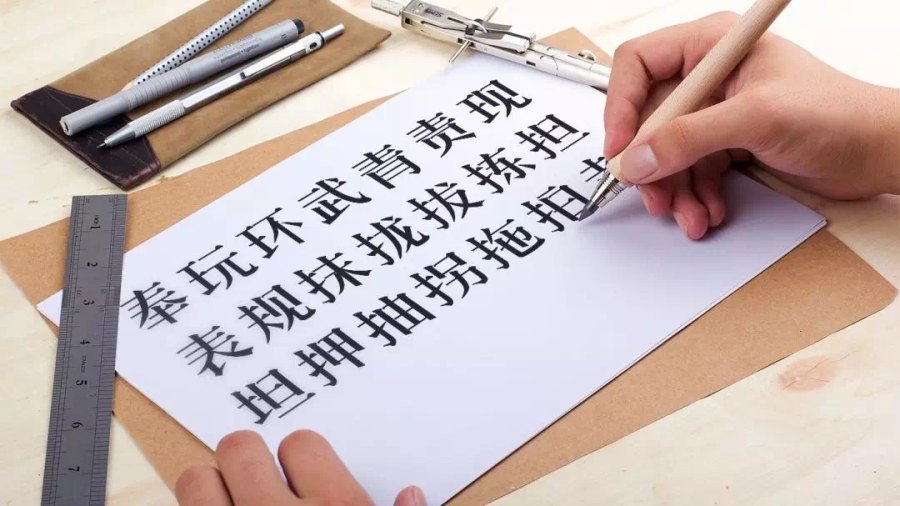 奉玩环武青责现
表规抹拢拔拣担
坦押抽拐拖拍
1
2
3
4
5
6
7